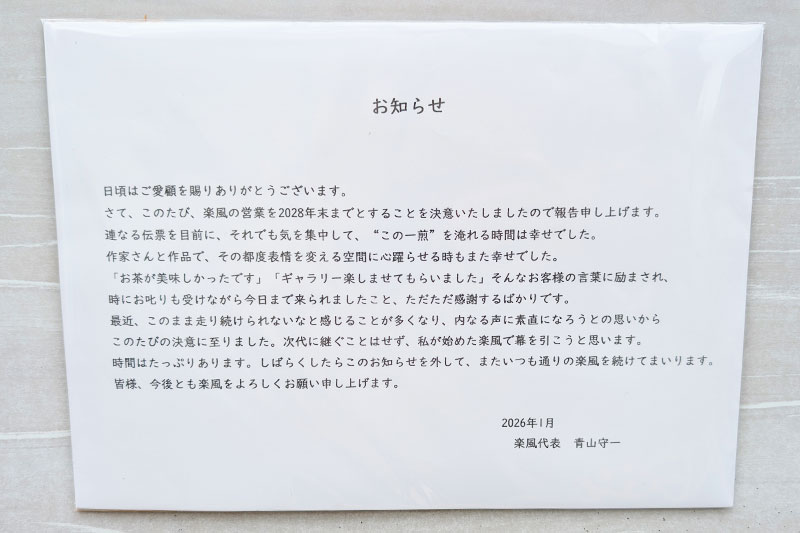 お知らせ
日頃はご愛顧を賜りありがとうございます。
さて、このたび、楽風の営業を2028年末までとすることを決意いたしましたので報告申し上げます。
連なる伝票を目前に、それでも気を集中して、“この一煎”を淹れる時間は幸せでした。
作家さんと作品で、その都度表情を変える空間に心躍らせる時もまた幸せでした。
「お茶が美味しかったです」「ギャラリー楽しませてもらいました」そんなお客様の言葉に励まされ、
時にお叱りも受けながら今日まで来られましたこと、ただただ感謝するばかりです。
最近、このまま走り続けられないなと感じることが多くなり、内なる声に素直になろうとの思いから
このたびの決意に至りました。次代に継ぐことはせず、私が始めた楽風で幕を引こうと思います。
時間はたっぷりあります。しばらくしたらこのお知らせを外して、またいつも通りの楽風を続けてまいります。
皆様、今後とも楽風をよろしくお願い申し上げます。
2026年1月
楽風代表　青山守一